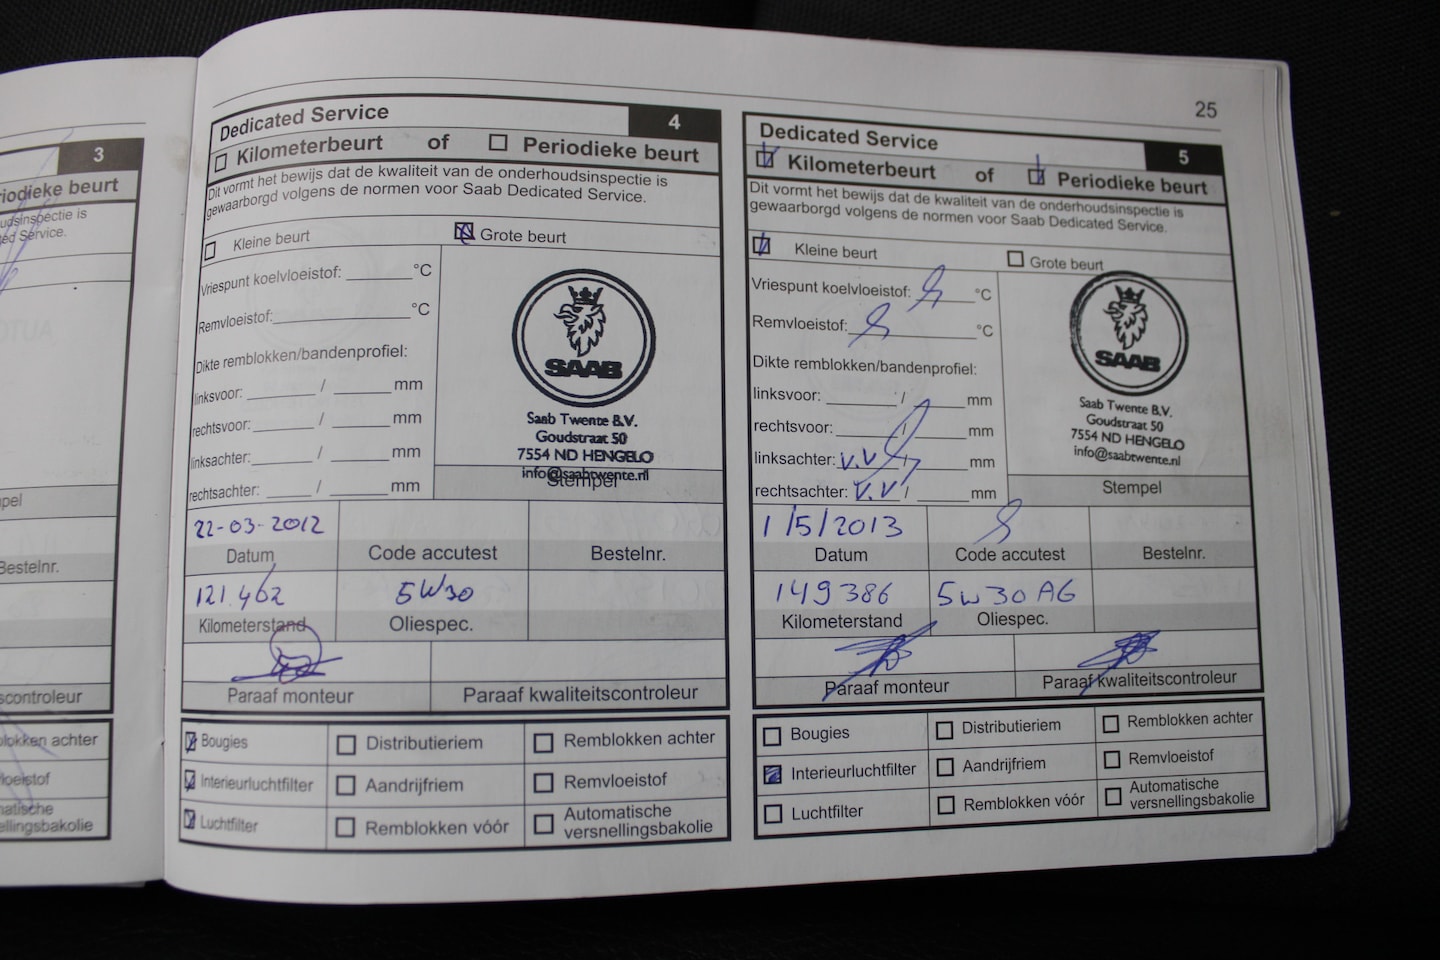 25
3
riodieke beurt
udsinspectie is
ed Service.
pel
Bestelnr.
scontroleur
blokken achter
vloeistof
matische
ellingsbakolie
Dedicated Service 4
Kilometerbeurt of Periodieke beurt
Dit vormt het bewijs dat de kwaliteit van de onderhoudsinspectie is
gewaarborgd volgens de normen voor Saab Dedicated Service.
Kleine beurt Grote beurt
Vriespunt koelvloeistof: °C
Remvloeistof: °C
Dikte remblokken/bandenprofiel:
linksvoor: / mm
rechtsvoor: / mm
linksachter: / mm
rechtsachter: / mm
SAAB
Saab Twente B.V.
Goudstraat 50
7554 ND HENGELO
info@saabtwente.nl
Stempel
22-03-2012
Datum Code accutest Bestelnr.
121.462 5W30
Kilometerstand Oliespec.
Paraaf monteur Paraaf kwaliteitscontroleur
Bougies Distributieriem Remblokken achter
Interieurluchtfilter Aandrijfriem Remvloeistof
Luchtfilter Remblokken vóór Automatische
versnellingsbakolie
Dedicated Service 5
Kilometerbeurt of Periodieke beurt
Dit vormt het bewijs dat de kwaliteit van de onderhoudsinspectie is
gewaarborgd volgens de normen voor Saab Dedicated Service.
Kleine beurt Grote beurt
Vriespunt koelvloeistof: °C
Remvloeistof: °C
Dikte remblokken/bandenprofiel:
linksvoor: / mm
rechtsvoor: / mm
linksachter: V.V / mm
rechtsachter: V.V / mm
SAAB
Saab Twente B.V.
Goudstraat 50
7554 ND HENGELO
info@saabtwente.nl
Stempel
1/5/2013
Datum Code accutest Bestelnr.
149386 5W30 AG
Kilometerstand Oliespec.
Paraaf monteur Paraaf kwaliteitscontroleur
Bougies Distributieriem Remblokken achter
Interieurluchtfilter Aandrijfriem Remvloeistof
Luchtfilter Remblokken vóór Automatische
versnellingsbakolie